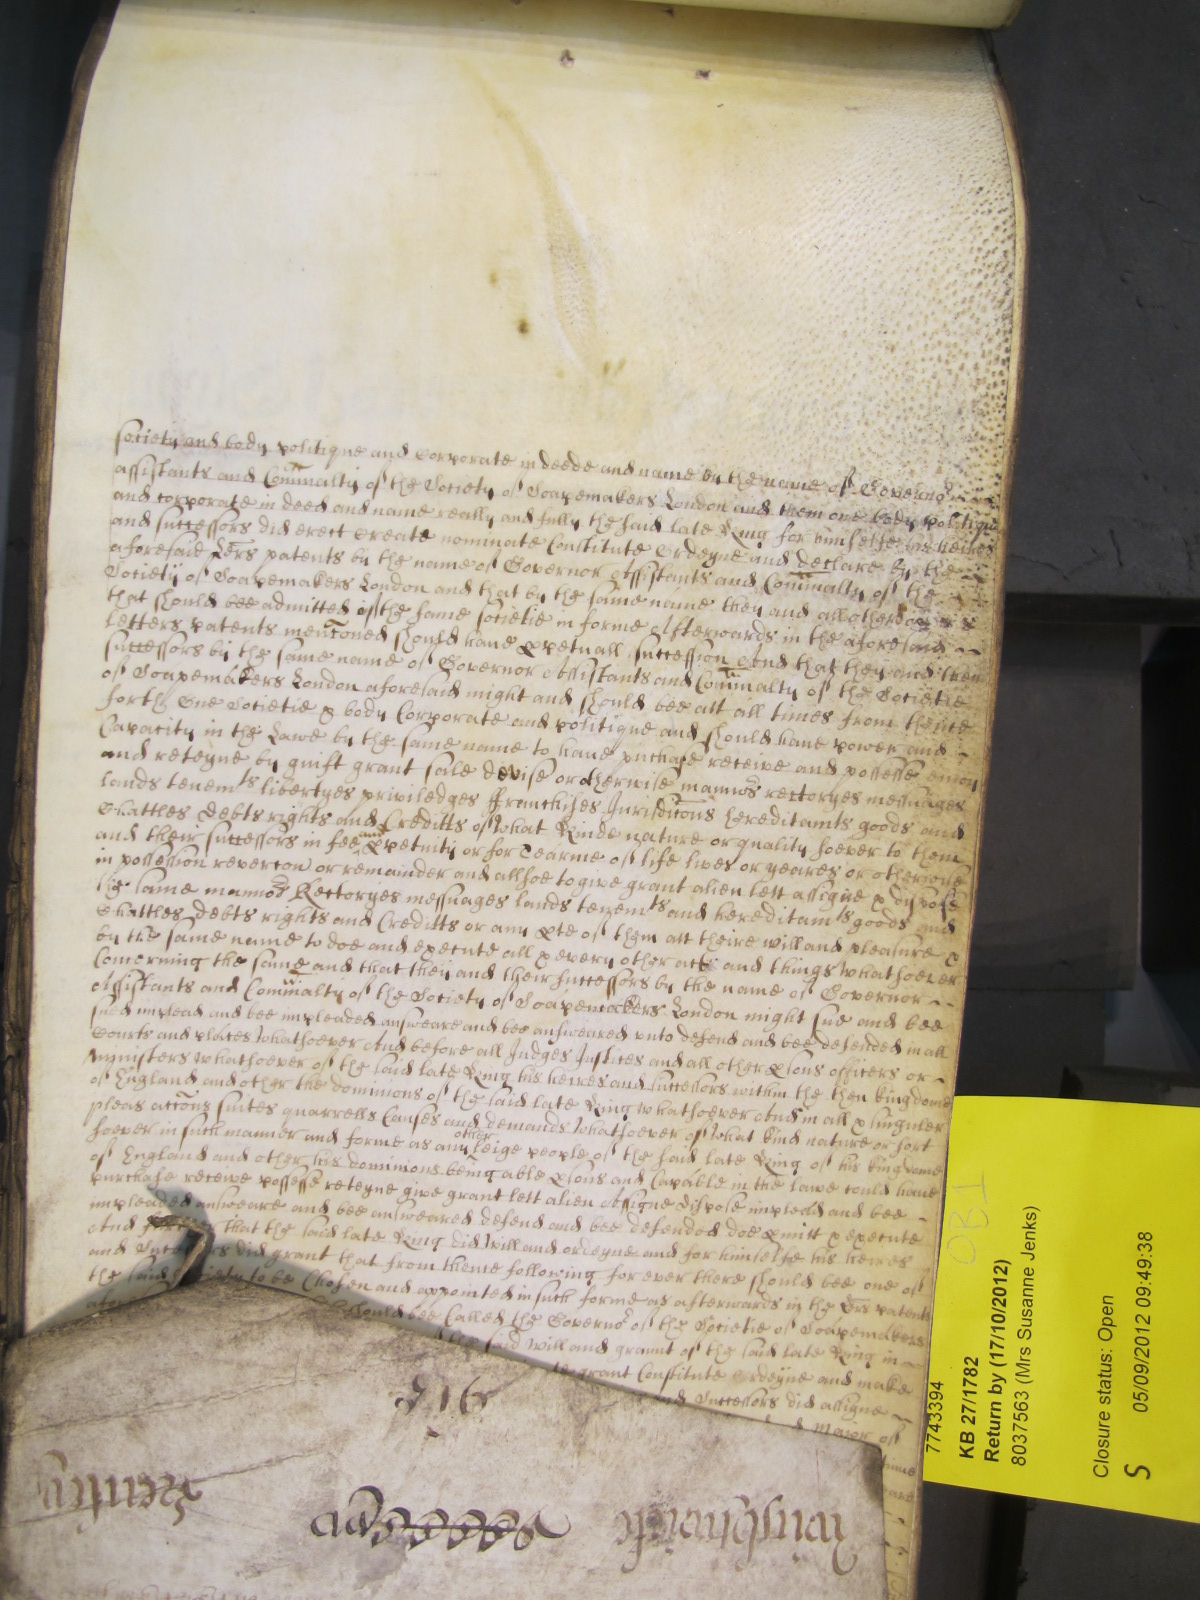 Society and body politique and Corporate in deede and name by the name of Governor
assistants and Cominalty of the Society of Soapemakers London and them one body politique
and corporate in deed and name really and fully the said late King for himselfe his heires
and successors did erect create nominate Constitute Ordeyne and declare By the
aforesaid Lers patents by the name of Governor Assistants and Cominalty of the
Society of Soapemakers London and that by the same name they and all others
that should bee admitted of the same Societie in forme Afterwards in the aforesaid
Letters patents mencioned should have ppetuall succession And that they and their
successors by the same name of Governor Assistants and Cominalty of the Societie
of Soapemakers London aforesaid might and should bee att all times from thence
forth One Societie & body Corporate and politique and should have power and
Capacity in the Lawe by the same name to have purchase receive and possesse enioy
and reteyne by guift grant sale devise or otherwise mannors rectoryes messuages
lands tenemts libertyes priviledges ffranchises Jurisdicons hereditamts goods and
Chattles debts rights and Creditts of what Kinde nature or quality soever to them
and their successors in fee and ppetuity or for Tearme of life lives or yeares or otherwise
in possession revercon or remainder and allsoe to give grant alien lett assigne & dispose
the same mannors Rectoryes messuages lands tenemts and hereditamts goods and
Chattles debts rights and Creditts or any pte of them att theire will and pleasure &
by the same name to doe and execute all & every other acts and things whatsoever
Concerning the same and that they and their successors by the name of Governor
Assistants and Cominalty of the Society of Soapemakers London might sue and bee
sued implead and bee impleaded answeare and bee answeared unto defend and bee defended in all
Courts and places whatsoever And before all Judges Justices and all other psons officers or
ministers whatsoever of the said late King his heires and successors within the then kingdome
of England and other the dominions of the said late King whatsoever And in all & singuler
pleas accons suites quarrells Causes and demands whatsoever of what kind nature or sort
soever in such mannor and forme as any other leige people of the said late King of his kingdome
of England and other his dominions being able psons and Capable in the lawe could have
purchase receive possesse reteyne give grant lett alien Assigne dispose implead and bee
impleaded answeare and bee answeared defend and bee defended doe pmitt & execute
And that the said late King did Will and ordeyne and for himselfe his heires
and Successors did grant that from theme following for ever there should bee one of
the said Society to be Chosen and appointed in such forme as afterwards in the Lrs patents
should bee Called the Governor of the Societie of Soapemakers
the said will and graunt of the said late King in
grant Constitute Ordeyne and make
and Successors did assigne
Major of
7743394
KB 27/1782
Return by (17/10/2012)
8037563 (Mrs Susanne Jenks)
Closure status: Open
S 05/09/2012 09:49:38
OB1